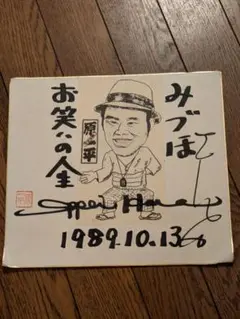 みづほ
原一平
お笑いの人生
Ippei Hara
1989.10.13